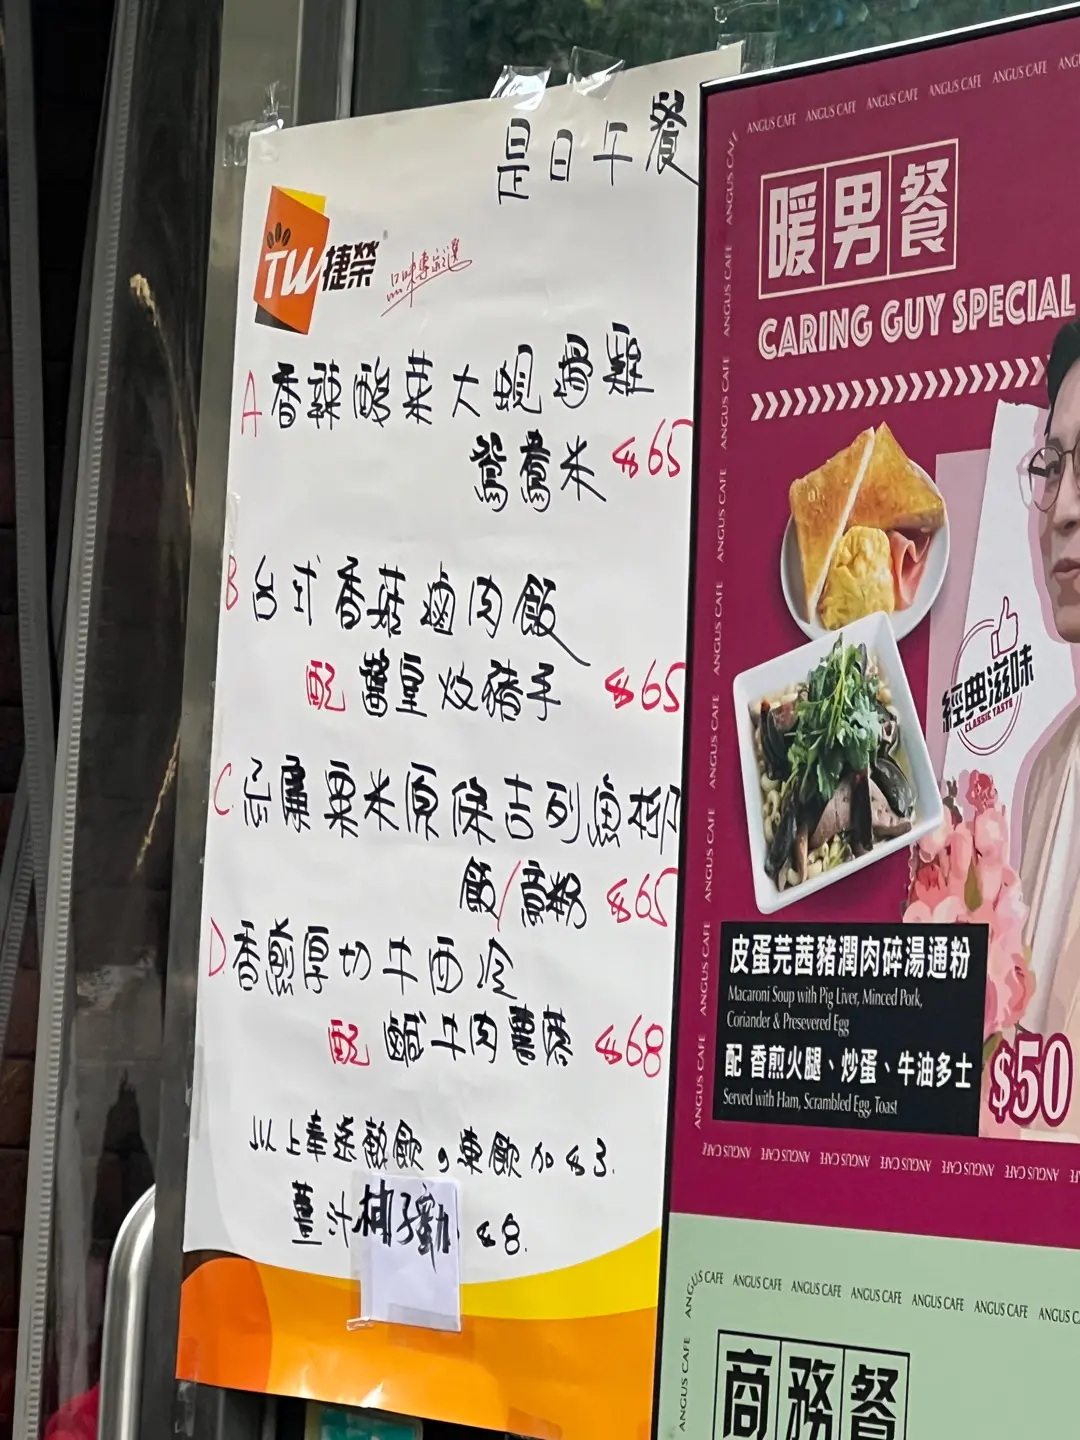 是日午餐
TW捷榮
A 香辣酸菜大蜆滑雞
鴛鴦米 $65
B 台式香菇滷肉飯
配 醬皇炆豬手 $65
C. 忌廉粟米原條吉列魚柳
飯/意粉 $65
D. 香煎厚切牛西冷
配 鹹牛肉薯蓉 $68
以上奉送熱飲。凍飲加$3.
薑汁 $8.
ANGUS CAFE ANGUS CAFE ANGUS CAFE ANGUS CAFE ANGUS CAFE
暖男餐
CARING GUY SPECIAL
經典滋味
CLASSIC TASTE
皮蛋芫茜豬潤肉碎湯通粉
Macaroni Soup with Pig Liver, Minced Pork,
Coriander & Presevered Egg
配 香煎火腿、炒蛋、牛油多士
Served with Ham, Scrambled Egg, Toast
$50
ANGUS CAFE ANGUS CAFE ANGUS CAFE ANGUS CAFE ANGUS CAFE ANGUS CAFE
ANGUS CAFE ANGUS CAFE ANGUS CAFE ANGUS CAFE ANGUS CAFE ANGUS CAFE
商務餐